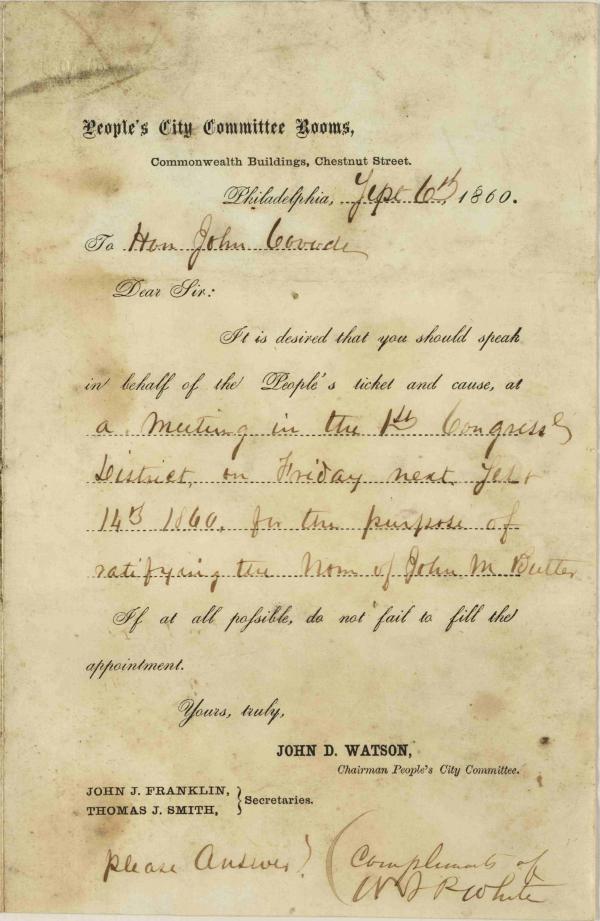 People's City Committee Rooms,
Commonwealth Buildings, Chestnut Street.
Philadelphia, Sept 6th 1860.
To Hon John Covode
Dear Sir:
It is desired that you should speak
in behalf of the People's ticket and cause, at
a Meeting in the 1st Congressl
District, on Friday next Sept
14th 1860, for the purpose of
ratifying the Nom of John M. Butler
If at all possible, do not fail to fill the
appointment.
Yours, truly,
JOHN D. WATSON,
Chairman People's City Committee.
JOHN J. FRANKLIN,
THOMAS J. SMITH,
Secretaries.
please Answer
Compliments of
W J P White